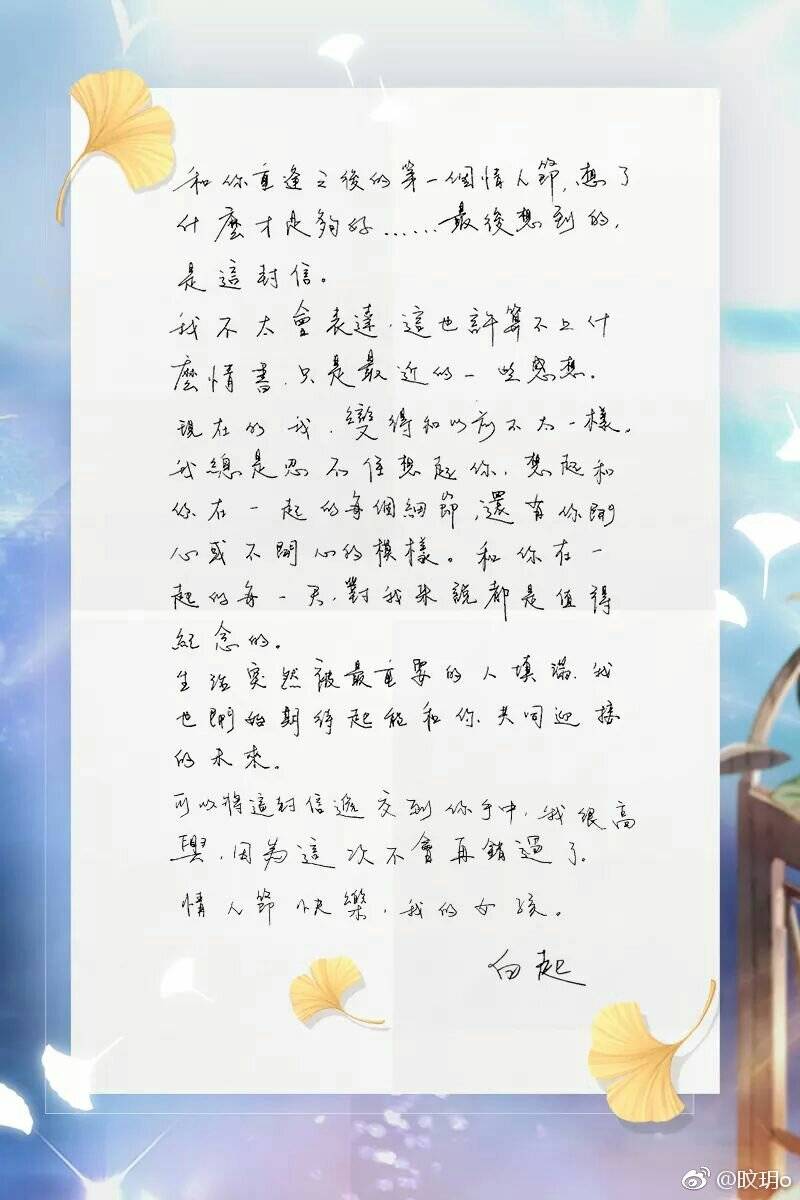 和你重逢之後的第一個情人節，想了
什麼才足夠好……最後想到的，
是這封信。
我不太會表達，這也許算不上什
麼情書，只是最近的一些感想。
現在的我，變得和以前不太一樣。
我總是忍不住想起你，想起和
你在一起的每個細節，還有你開
心或不開心的模樣。和你在一
起的每一天，對我來說都是值得
紀念的。
生活突然被最重要的人填滿，我
也開始期待起能和你共同迎接
的未來。
可以將這封信遞交到你手中，我很高
興，因為這次不會再錯過了。
情人節快樂，我的女孩。
白起
@旼玥o